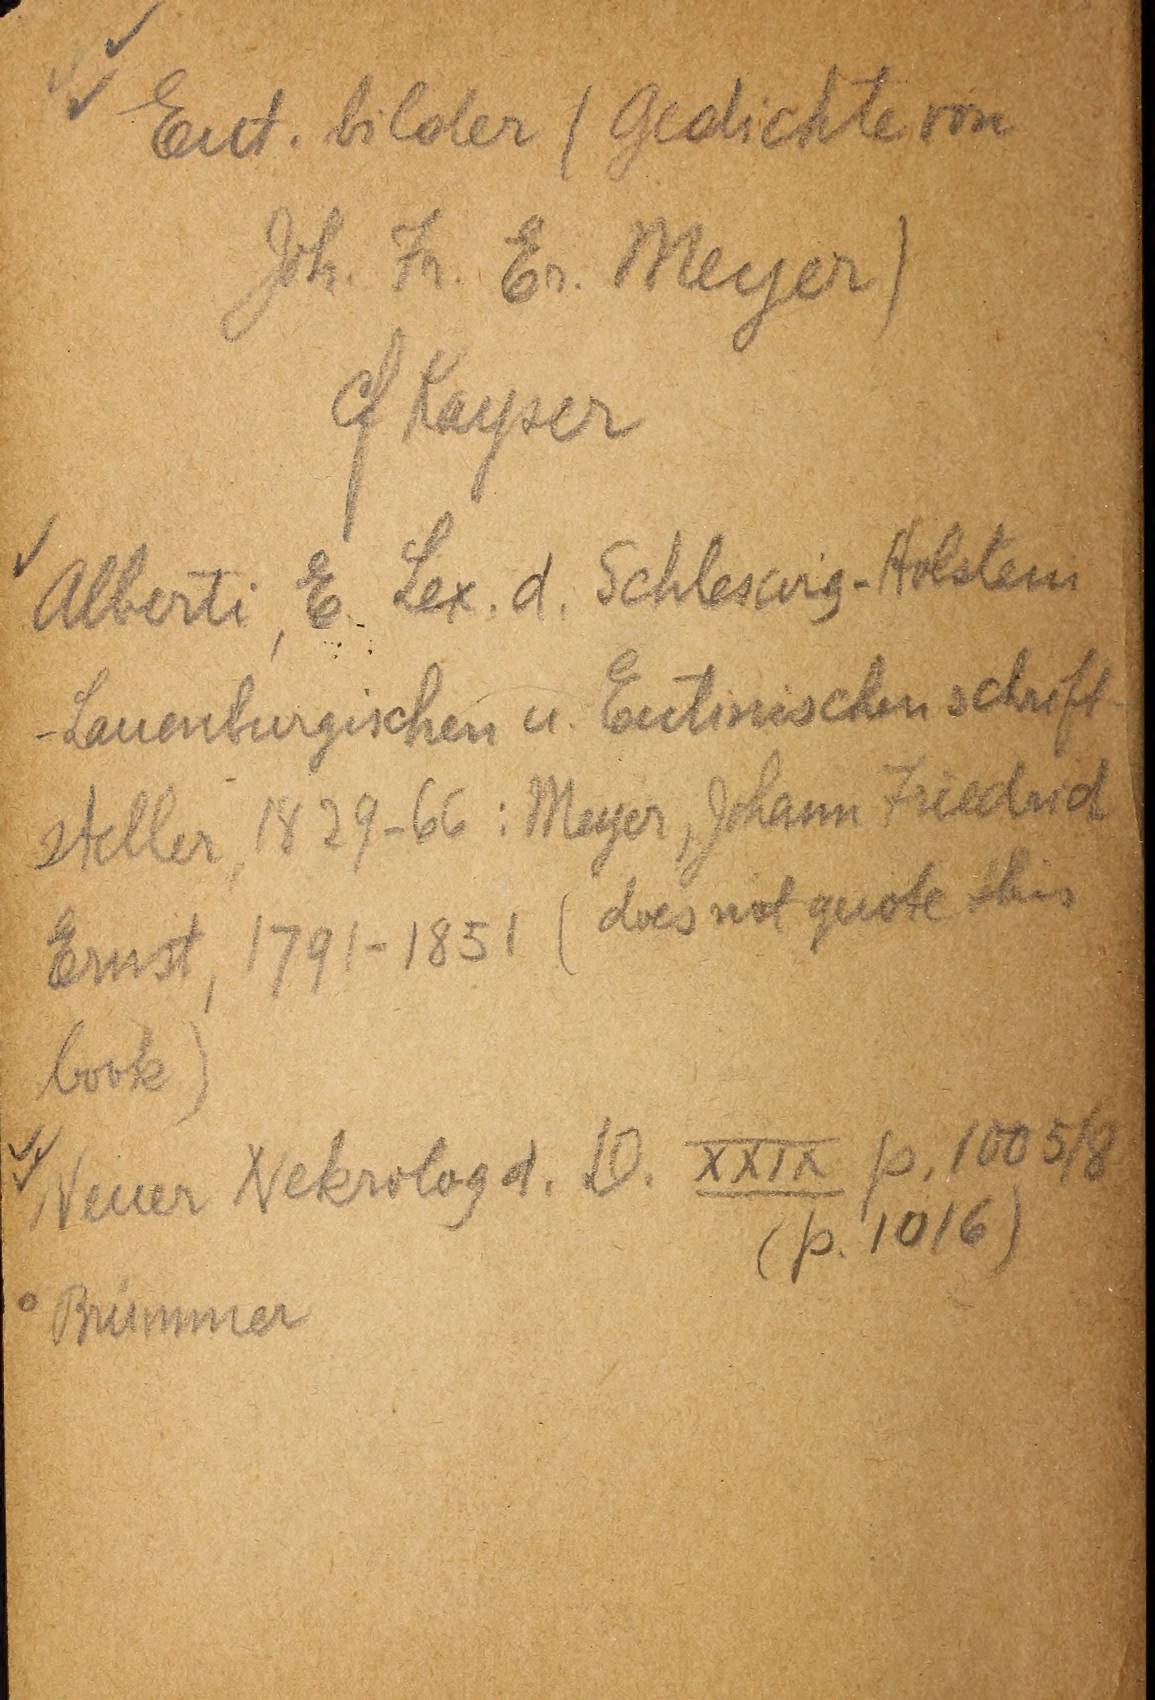 ✓✓✓ Eut. bilder (Gedichte von
Joh. Fr. Er. Meyer)
cf Kayser
✓ Alberti, E. Lex. d. Schleswig-Holstein
-Lauenburgischen u. Eutinischen schrift-
steller, 1829-66 : Meyer, Johann Friedrich
Ernst, 1791-1851 (does not quote this
book)
✓✓ Neuer Nekrolog d. D. XXIX p. 1005/8
(p. 1016)
° Brümmer